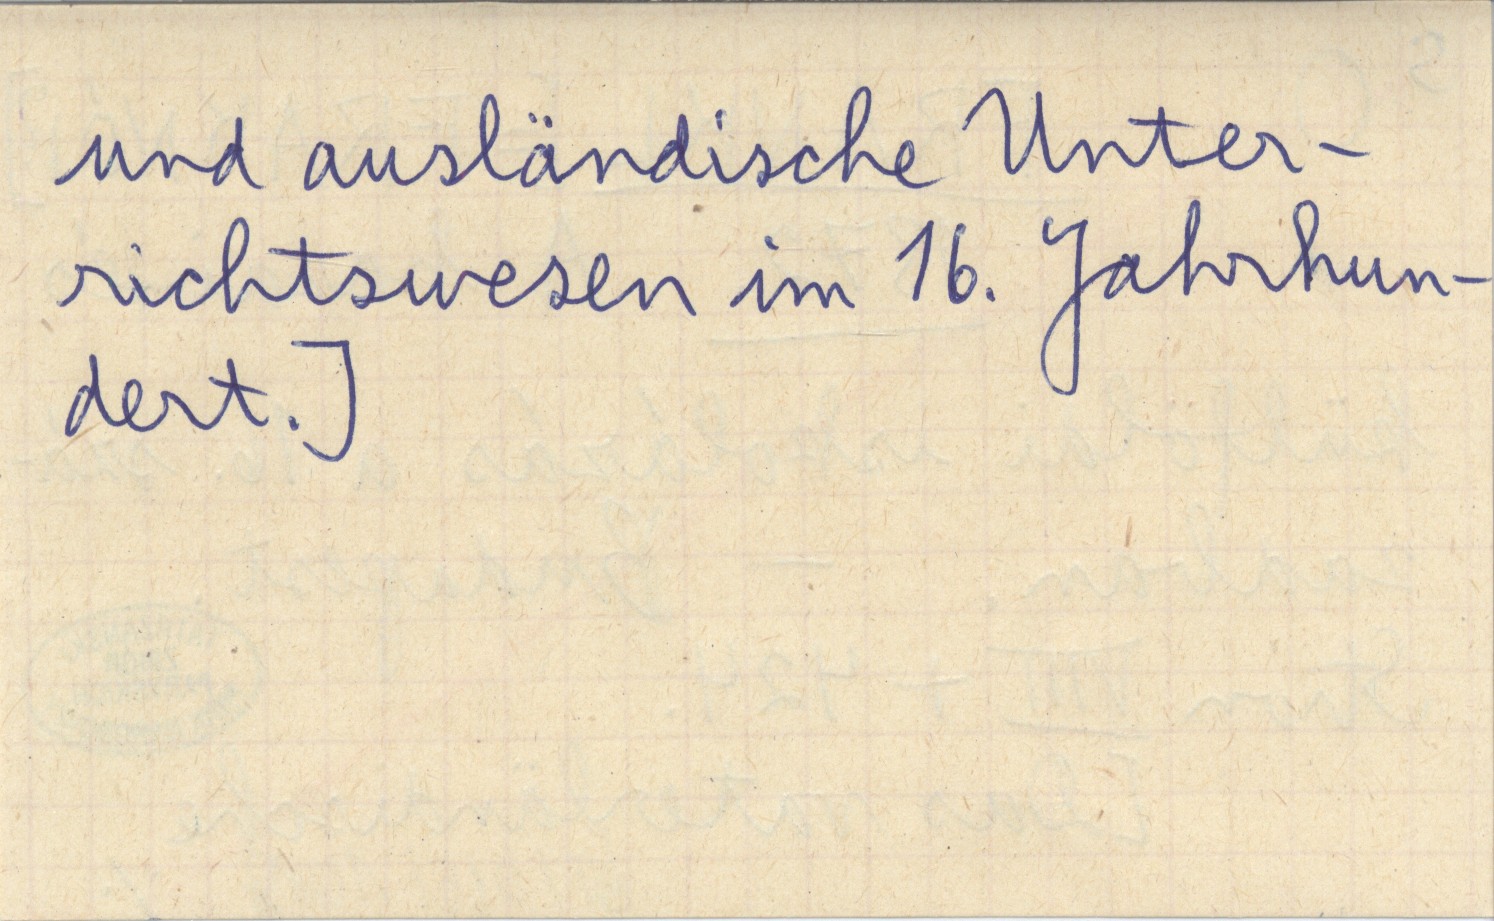 und ausländische Unter-
richtswesen im 16. Jahrhun-
dert.]